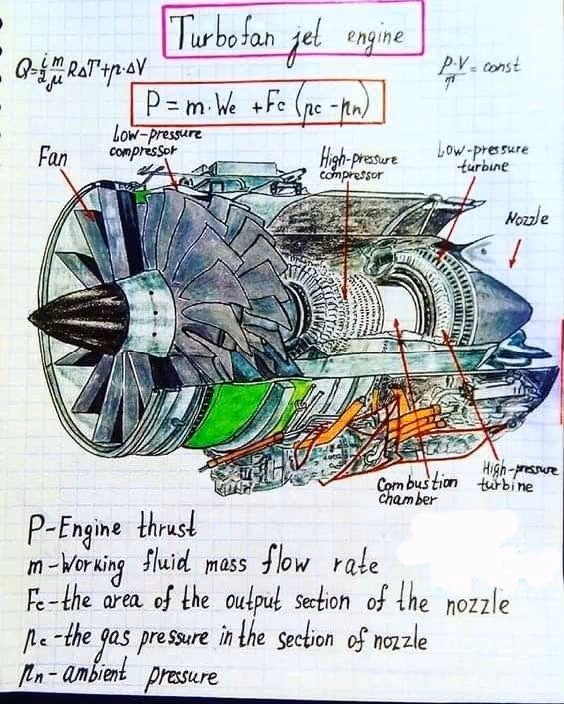 Turbofan jet engine
Q=i/2 m/μ RΔT+p·ΔV
p·V/T = const
P = m·We + Fc (pc - pn)
Low-pressure
compressor
Fan
High-pressure
compressor
Low-pressure
turbine
Nozzle
Combustion
chamber
High-pressure
turbine
P-Engine thrust
m-Working fluid mass flow rate
Fc-the area of the output section of the nozzle
pc-the gas pressure in the section of nozzle
pn-ambient pressure